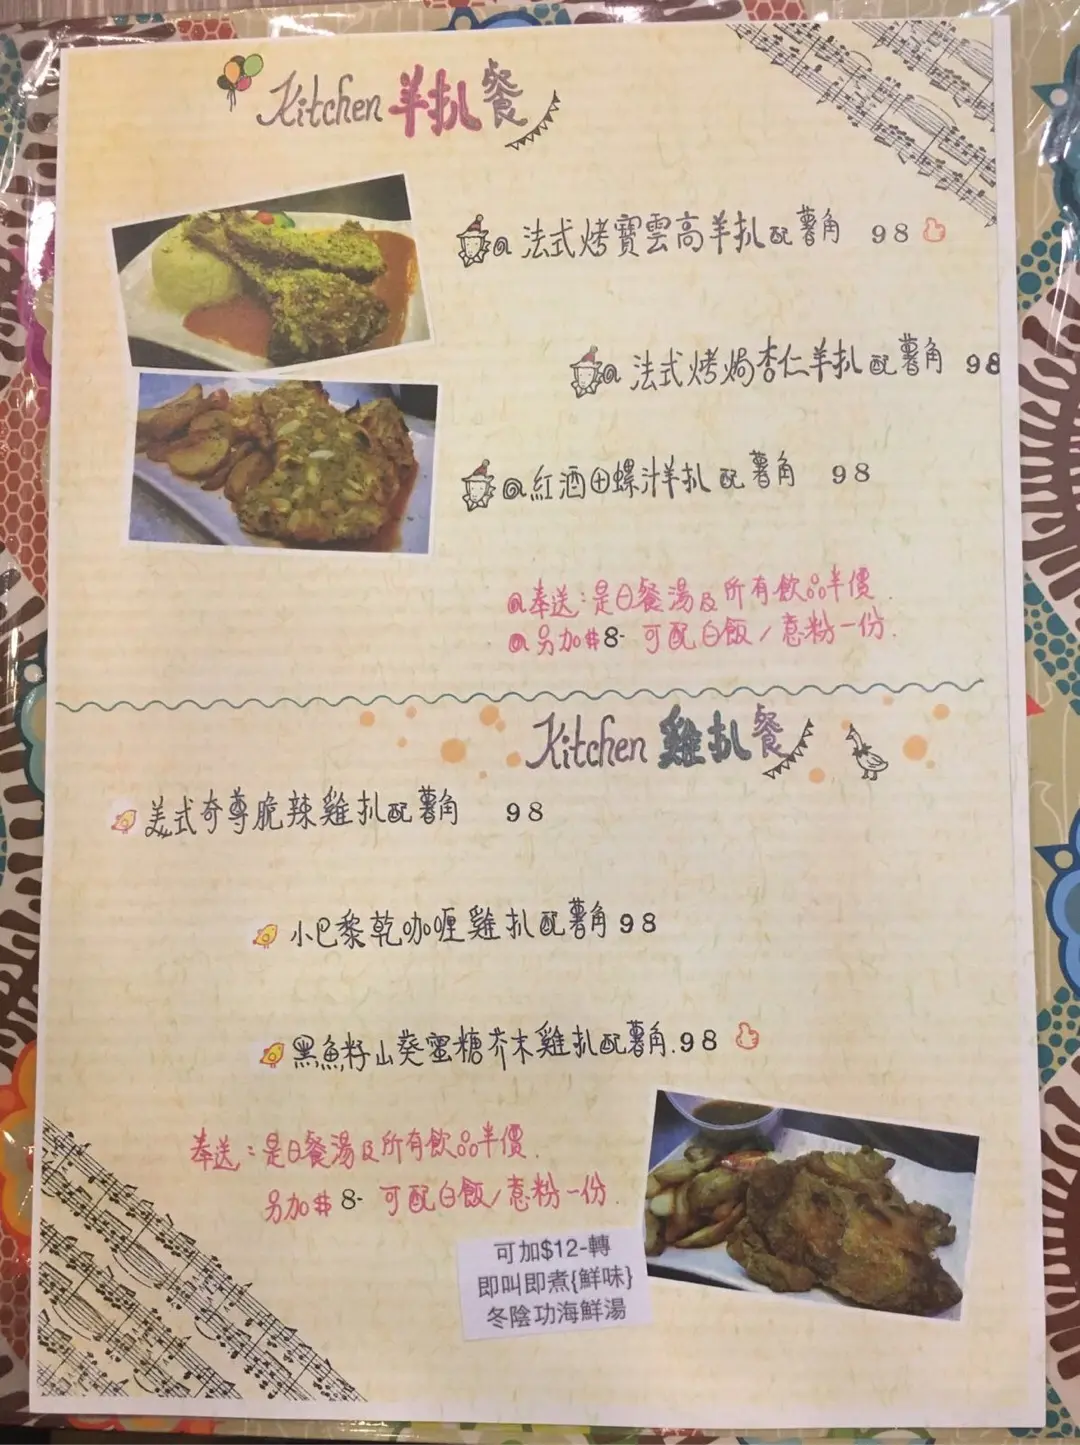 Kitchen 羊扒餐
@ 法式烤寶雲高羊扒配薯角 98
@ 法式烤焗杏仁羊扒配薯角 98
@ 紅酒田螺汁羊扒配薯角 98
@奉送:是日餐湯及所有飲品半價.
@另加$8- 可配白飯/意粉一份.
Kitchen 雞扒餐
美式奇尊脆辣雞扒配薯角 98
小巴黎乾咖喱雞扒配薯角 98
黑魚籽山葵蜜糖芥末雞扒配薯角.98
奉送:是日餐湯及所有飲品半價.
另加$8- 可配白飯/意粉一份.
可加$12-轉
即叫即煮{鮮味}
冬陰功海鮮湯